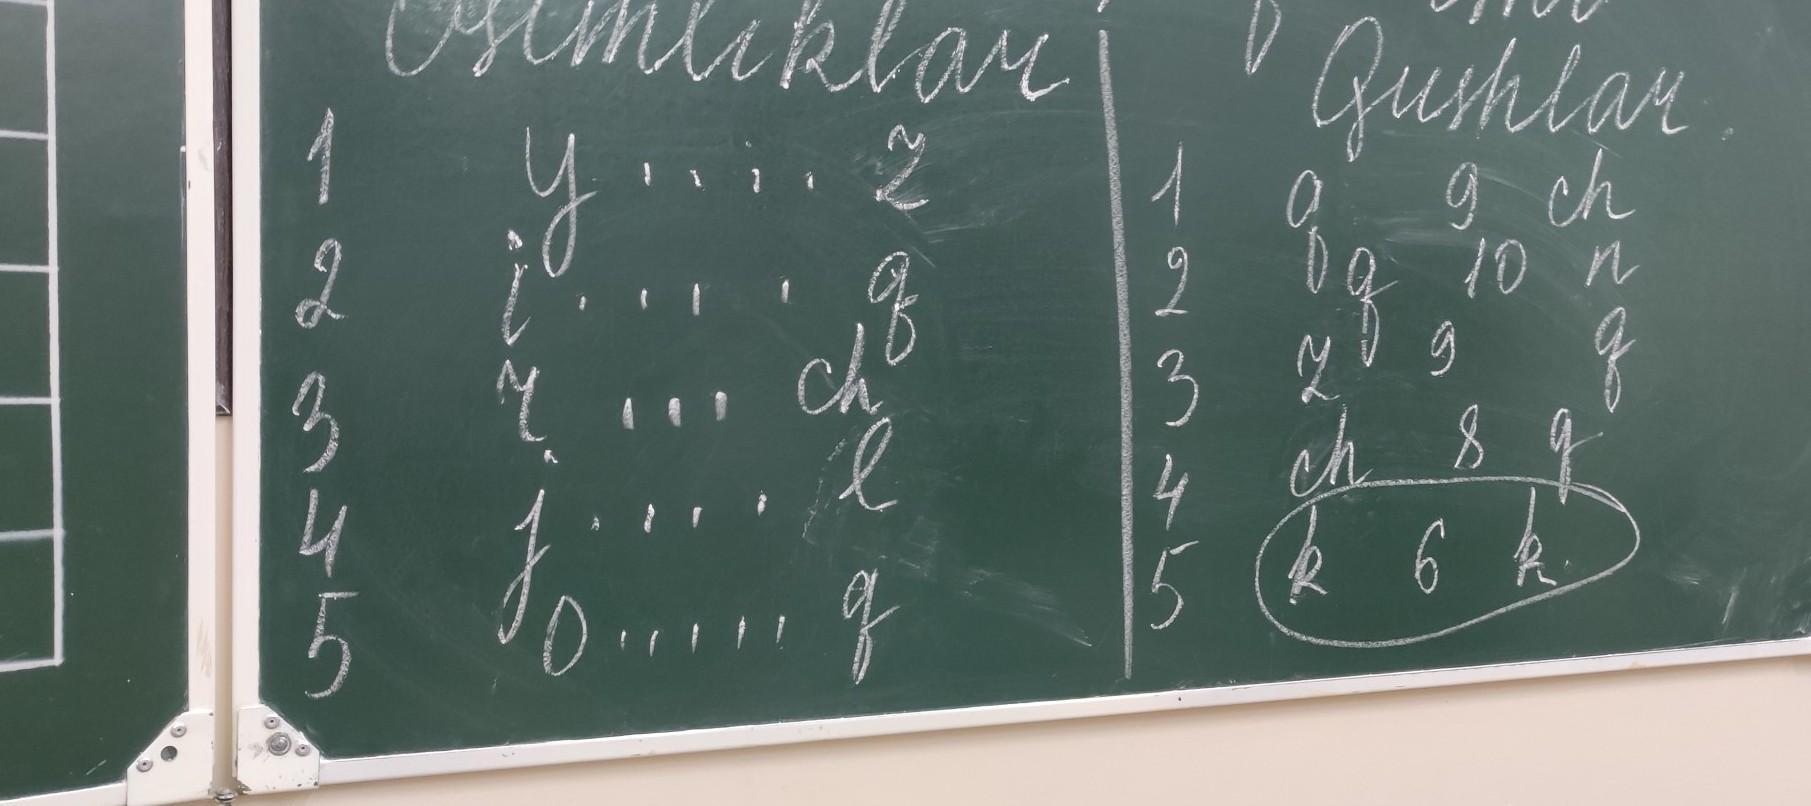 Osimliklar
1 y ' ' ' ' z
2 i ' ' ' ' q
3 r ' ' ' ch
4 j ' ' ' ' l
5 o ' ' ' ' ' q
Qushlar
1 q 9 ch
2 q 10 n
3 z 9 q
4 ch 8 q
5 k 6 k